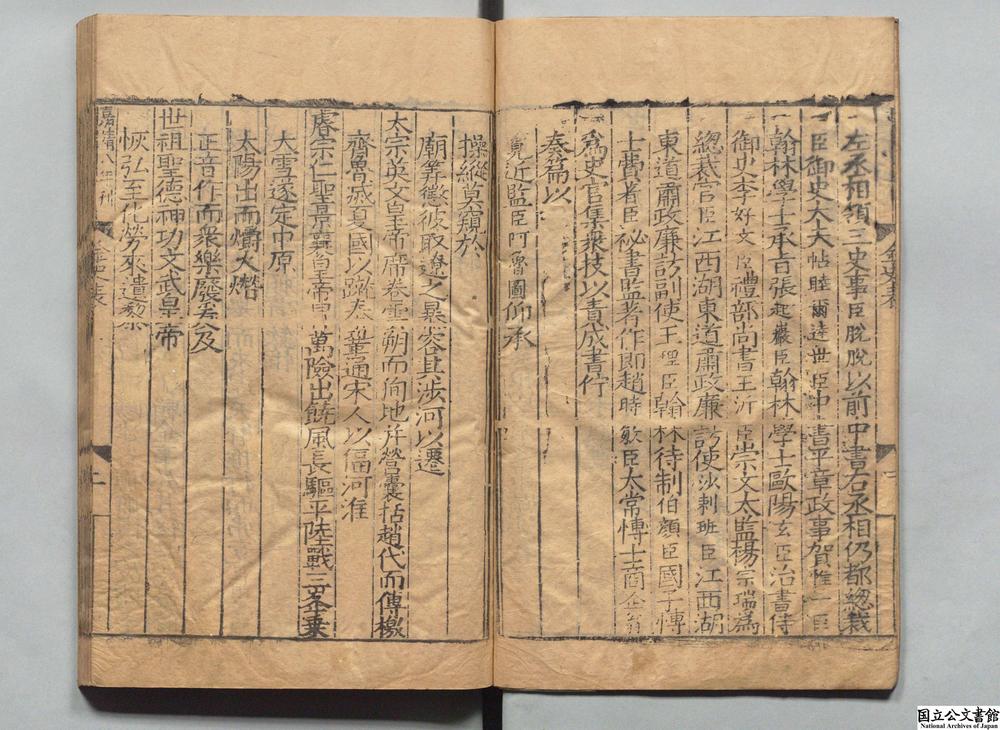 左丞相領三史事臣脫脫以前中書右丞相仍都總裁
臣御史大夫帖睦爾達世臣中書平章政事賀惟一臣
翰林學士承旨張起巖臣翰林學士歐陽玄臣治書侍
御史李好文臣禮部尚書王沂臣崇文太監楊宗瑞為
總裁官臣江西湖東道肅政廉訪使沙剌班臣江西湖
東道肅政廉訪副使王理臣翰林待制伯顏臣國子博
士費著臣祕書監著作郎趙時敏臣太常博士商企翁
為史官集衆技以責成書佇
奏篇以
覽近監臣阿魯圖仰承
金史表
操縱莫窺於
廟筭懲彼取遼之暴容其涉河以遷
太宗英文皇帝席卷雲朔而徇地幷營囊括趙代而傳檄
齊魯滅夏國以蹴秦鞏通宋人以偪河淮
睿宗仁聖景襄皇帝冒萬險出饒風長驅平陸戰三峯乗
大雪遂定中原
太陽出而爝火熄
正音作而衆樂廢爰及
世祖聖德神功文武皇帝
恢弘至化勞來遺黎
嘉靖八年刊
金史表
二
国立公文書館
National Archives of Japan